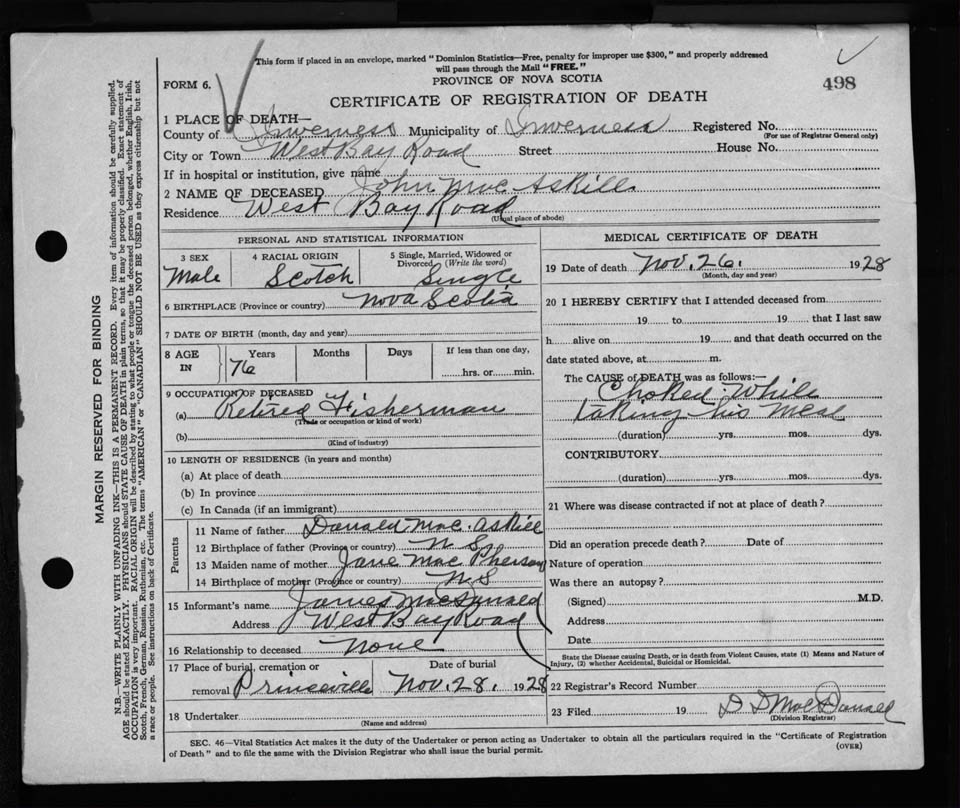 This form if placed in an envelope, marked "Dominion Statistics—Free, penalty for improper use $300," and properly addressed
will pass through the Mail "FREE."
FORM 6.
PROVINCE OF NOVA SCOTIA
498
CERTIFICATE OF REGISTRATION OF DEATH
1 PLACE OF DEATH—
County of Inverness Municipality of Inverness Registered No.
(For use of Registrar General only)
City or Town West Bay Road Street House No.
If in hospital or institution, give name
2 NAME OF DECEASED John Mac Askill
Residence West Bay Road
(Usual place of abode)
PERSONAL AND STATISTICAL INFORMATION
3 SEX 4 RACIAL ORIGIN 5 Single, Married, Widowed or
Divorced (Write the word)
Male Scotch Single
6 BIRTHPLACE (Province or country) Nova Scotia
7 DATE OF BIRTH (month, day and year)
8 AGE IN Years Months Days If less than one day,
76 hrs. or min.
9 OCCUPATION OF DECEASED
(a) Retired Fisherman
(Trade or occupation or kind of work)
(b)
(Kind of industry)
10 LENGTH OF RESIDENCE (in years and months)
(a) At place of death
(b) In province
(c) In Canada (if an immigrant)
Parents
11 Name of father Donald Mac. Askill
12 Birthplace of father (Province or country) N S
13 Maiden name of mother Jane Mac Pherson
14 Birthplace of mother (Province or country) N.S
15 Informant's name James MacDonald
Address West Bay Road
16 Relationship to deceased None
17 Place of burial, cremation or Date of burial
removal Princeville Nov. 28, 1928
18 Undertaker
(Name and address)
MEDICAL CERTIFICATE OF DEATH
19 Date of death Nov. 26. 1928
(Month, day and year)
20 I HEREBY CERTIFY that I attended deceased from
19 to 19 that I last saw
h alive on 19 and that death occurred on the
date stated above, at m.
The CAUSE of DEATH was as follows:—
Choked while
taking his meal
(duration) yrs. mos. dys.
CONTRIBUTORY
(duration) yrs. mos. dys.
21 Where was disease contracted if not at place of death?
Did an operation precede death? Date of
Nature of operation
Was there an autopsy?
(Signed) M.D.
Address
Date
State the Disease causing Death, or in death from Violent Causes, state (1) Means and Nature of
Injury, (2) whether Accidental, Suicidal or Homicidal.
22 Registrar's Record Number
23 Filed 19 D D MacDonald
(Division Registrar)
SEC. 46—Vital Statistics Act makes it the duty of the Undertaker or person acting as Undertaker to obtain all the particulars required in the "Certificate of Registration
of Death" and to file the same with the Division Registrar who shall issue the burial permit.
(OVER)
MARGIN RESERVED FOR BINDING
N.B.—WRITE PLAINLY WITH UNFADING INK—THIS IS A PERMANENT RECORD. Every item of information should be carefully supplied.
AGE should be stated EXACTLY. PHYSICIANS should STATE CAUSE OF DEATH in plain terms, so that it may be properly classified. Exact statement of
OCCUPATION is very important. RACIAL ORIGIN will be described by stating to what people or tongue the deceased person belonged, whether English, Irish,
Scotch, French, German, Russian, Ruthenian, etc. The terms "AMERICAN" or "CANADIAN" SHOULD NOT BE USED as they express citizenship but not
a race or people. See instructions on back of Certificate.